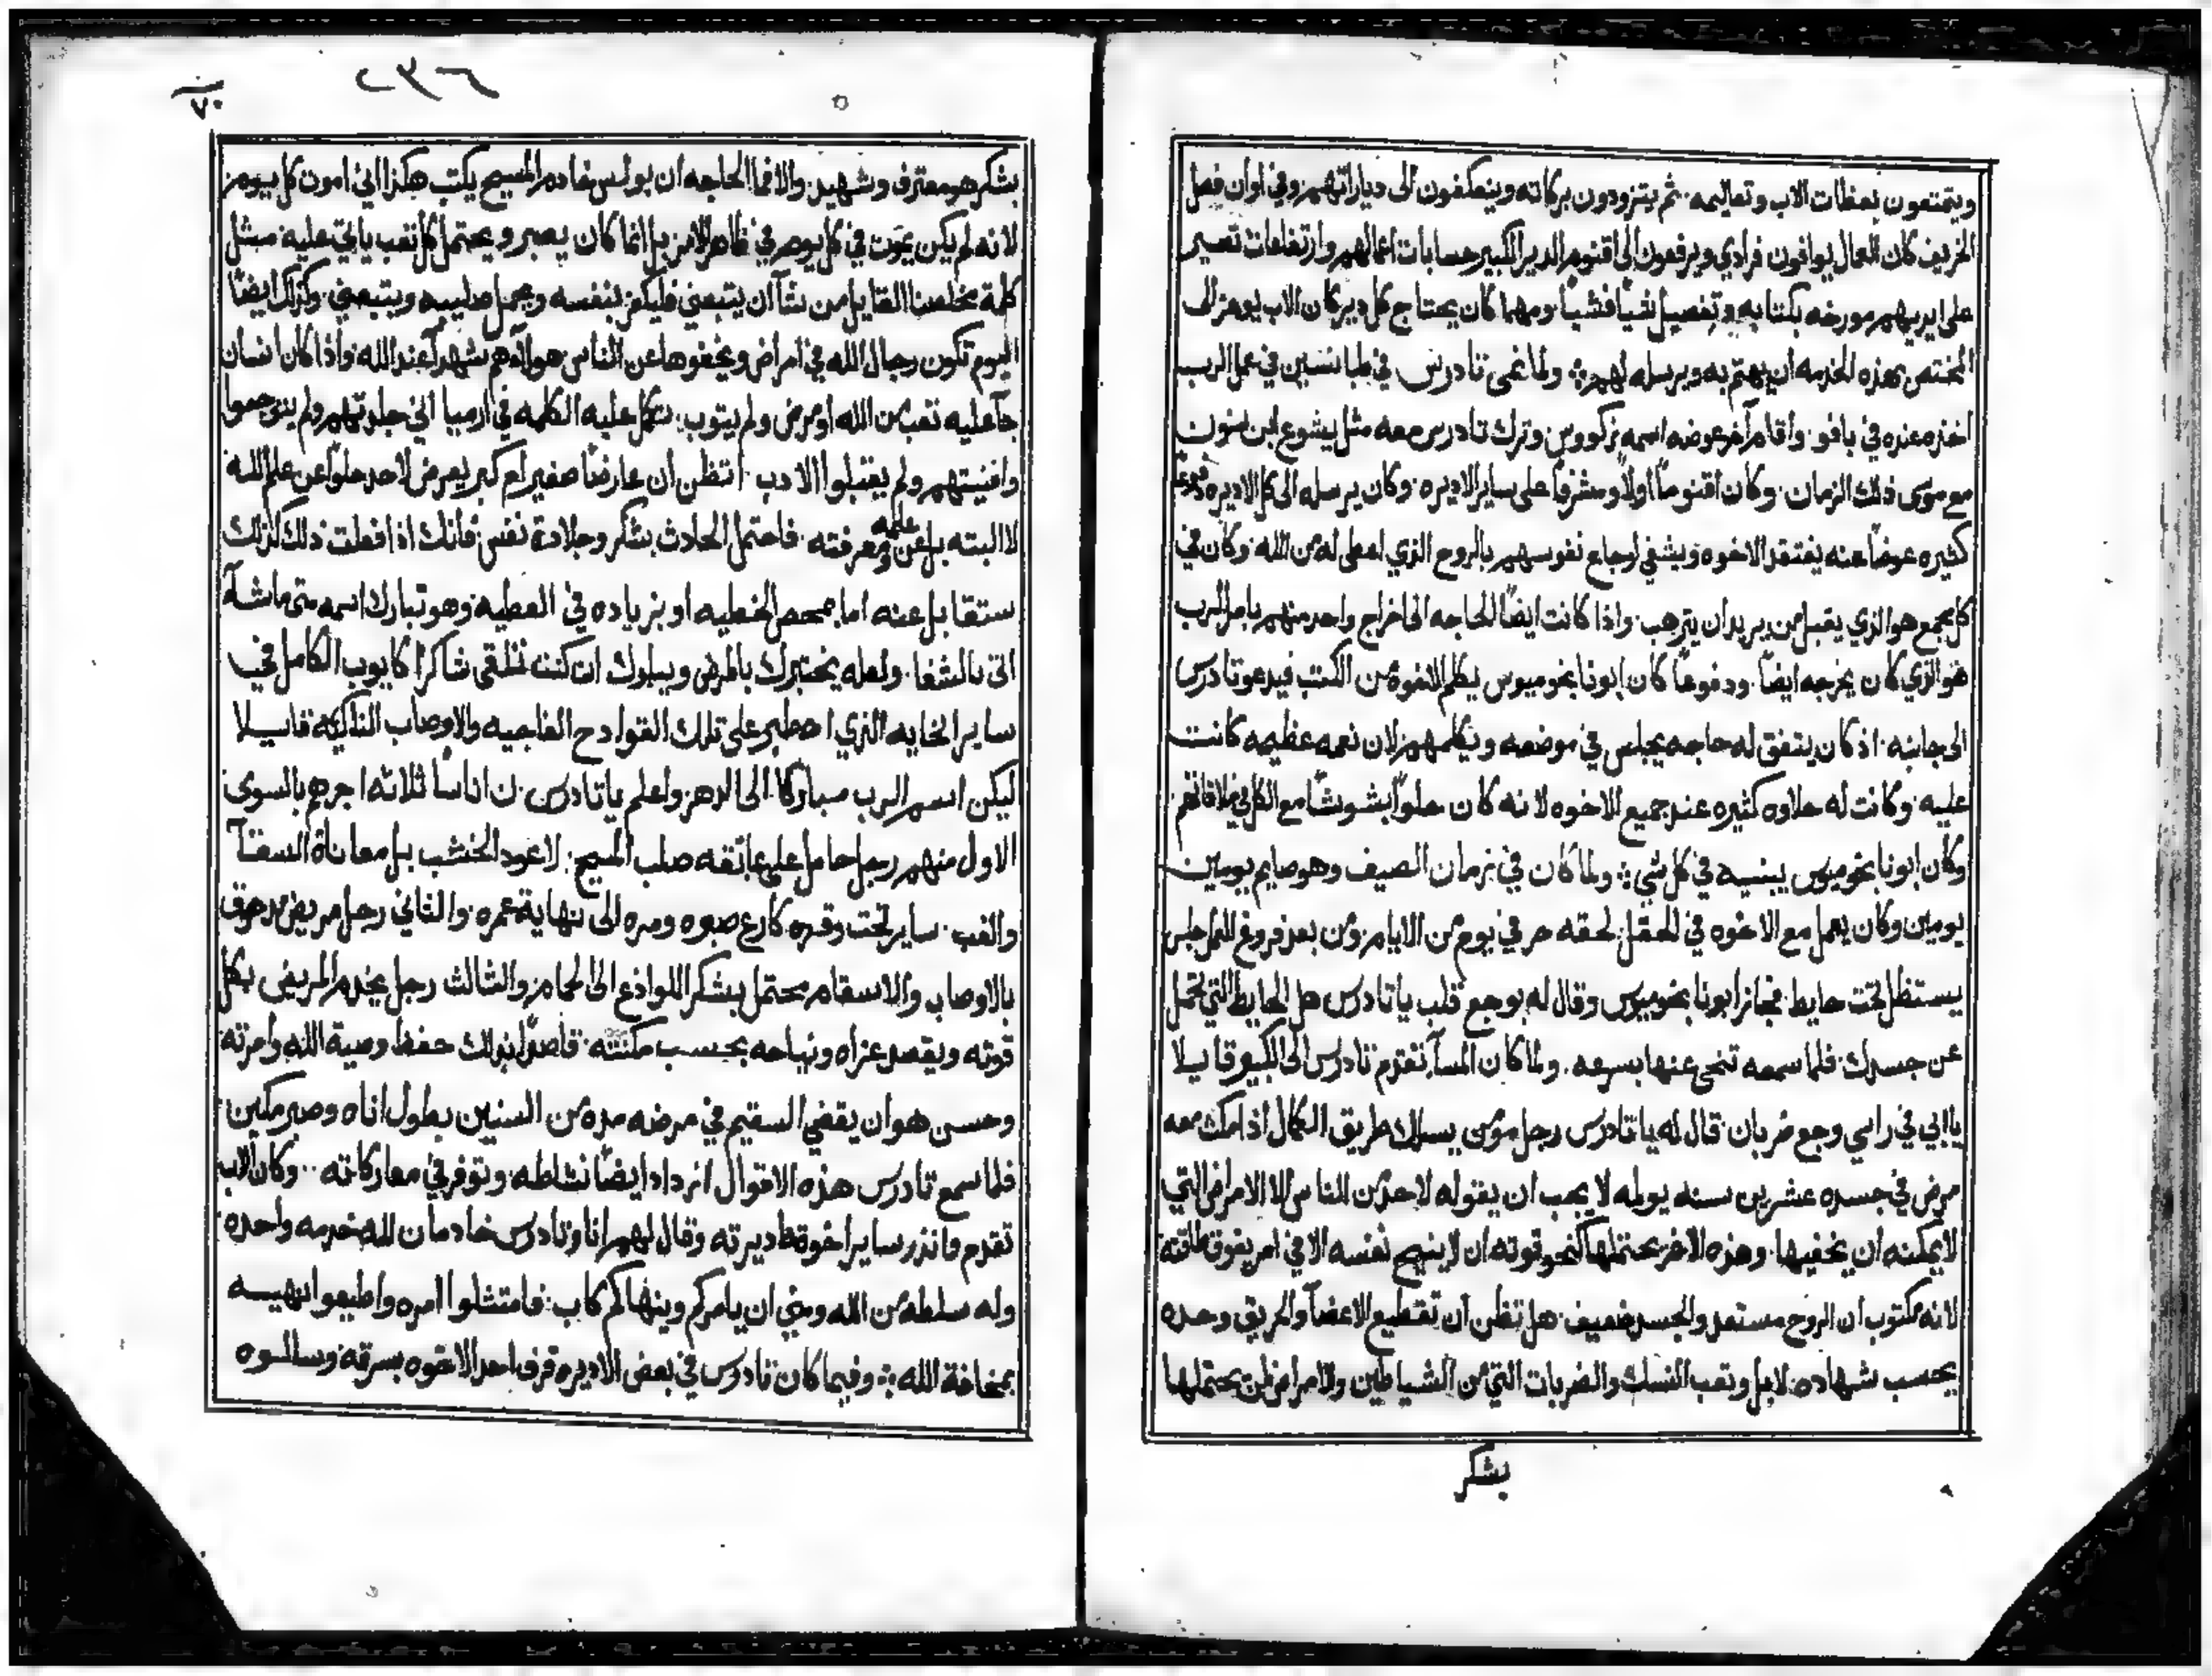 ويتمتعون بعظات الاب وتعاليمه ثم يتزودون بركاته وينعكفون الى دياراتهم وفي اوان فصل
الخريف كان العمال يوافون فرادي ويرفعون الى اقنوم الدير الكبير حسابات اعمالهم وارتفاعات تصير
على ايديهم مورخه بكتابه وتفصيل شيا فشيا ومهما كان يحتاج كل دير كان الاب يوعز الى
المختص بهذه الخدمه ان يهتم به ويرسله لهم ولما نمى تادرس في طبانسين في عمل الرب
اخذه عنده في بافو واقام اخر عوضه اسمه وترك تادرس معه مثل يشوع ابن نون
مع موسى ذلك الزمان وكان اقنوما اولا ومشرفا على ساير الاديره وكان يرسله الى كل الاديره دفوعا
كثيره عوضا عنه يفتقد الاخوه ويشفي اوجاع نفوسهم بالروح الذي اعطى له من الله وكان في
كل مجمع هو الذي يقبل من يريد ان يترهب واذا كانت ايضا الحاجه الى اخراج واحد منهم بامر الرب
هو الذي كان يخرجه ايضا ودفوعا كان ابونا بخوميوس يكلم الاخوه من الكتب فيدعو تادرس
الى جانبه اذ كان يتفق له حاجه يجلس في موضعه ويكلمهم لان نعمه عظيمه كانت
عليه وكانت له حلاوه كثيره عند جميع الاخوه لانه كان حلوا بشوشا مع الكل في ملاقاتهم
وكان ابونا بخوميوس يبنيه في كل شي ولما كان في زمان الصيف وهو صايم يومين
يومين وكان يعمل مع الاخوه في الحقل لحقه حر في يوم من الايام ومن بعد فروغ العمل جلس
يستظل تحت حايط فجاز ابونا بخوميوس وقال له بوجع قلب يا تادرس هل الحايط التي تحمل
عن جسدك فلما سمعه تنحى عنها بسرعه ولما كان المسآ تقدم تادرس الى الكبير قايلا
يا ابي في راسي وجع ضربان قال له يا تادرس رجل مومن يسلك طريق الكمال اذا مكث معه
مرض في جسده عشرين سنه يولمه لا يجب ان يقوله لاحد من الناس الا الامراض التي
لا يمكنه ان يخفيها وهذه الاخر يحتملها كنحو قوته ان لا ينيح نفسه الا في امر يفوق طاقته
لانه مكتوب ان الروح مستعد والجسد ضعيف هل تظن ان تقطيع الاعضآ والحريق وحده
يحسب شهاده لا بل وتعب النسك والضربات التي من الشياطين والامراض لمن يحتملها
بشكر
٧٠
٢٣٦
بشكر هو معترف وشهيد والا فما الحاجه ان بولس خادم المسيح يكتب هكذا اني اموت كل يوم
لانه لم يكن يموت في كل يوم في ظاهر الامر بل انما كان يصبر ويحتمل كل تعب ياتي عليه مثل
كلمة مخلصنا القايل من شآ ان يتبعني فليكفر بنفسه ويحمل صليبه ويتبعني وكذلك ايضا
اليوم تكون رجال الله في امراض ويخفوها عن الناس هولآ هم شهدآ عند الله واذا كان انسان
جآ عليه تعب من الله او مرض ولم يتوب تكمل عليه الكلمه في ارميا اني جلدتهم ولم يتوجعوا
وافنيتهم ولم يقبلوا الادب اتظن ان عارضا صغير ام كبر يعرض لاحد خلوا عن علم الله
لا البته بل عن علمه ومعرفته فاحتمل الحادث بشكر وجلادة نفس فانك اذا فعلت ذلك كذلك
ستقابل عنه اما بمحص الخطيه او بزياده في العطيه وهو تبارك اسمه متى ما شآ
اتى بالشفا ولعله يختبرك بالمرض ويبلوك ان كنت تلقى شاكرا كايوب الكامل في
ساير الخايه الذي اصطبر على تلك القوادح الفاجيه والاوصاب الناكيه قايلا
ليكن اسم الرب مباركا الى الدهر واعلم يا تادرس ان اناسا ثلاثه اجرهم بالسوى
الاول منهم رجل حامل على عاتقه صلب المسيح لا عود الخشب بل معاناة السقآ
والغب ساير تحت وقره كارع صبوه ومره الى نهاية عمره والثاني رجل مريض مرهق
بالاوصاب والاسقام محتمل بشكر اللواذع الى الحمام والثالث رجل يخدم المريض بكل
قوته ويقصد عزاه ونياحه بحسب مكنته قاصدا بذلك حفظ وصية الله وامرته
وحسن هو ان يقضي السقيم في مرضه مده من السنين بطول اناه وصبر مكين
فلما سمع تادرس هذه الاقوال ازداد ايضا نشاطه وتوفر في معاركاته وكان الاب
تقدم فانذر ساير اخوة اديرته وقال لهم انا وتادرس خادمان لله خدمه واحده
وله سلطه من الله ومني ان يامركم وينهاكم كاب فامتثلوا امره واطيعوا نهيه
بمخافة الله وفيما كان تادرس في بعض الاديره قرف احد الاخوه بسرقه وسالوه